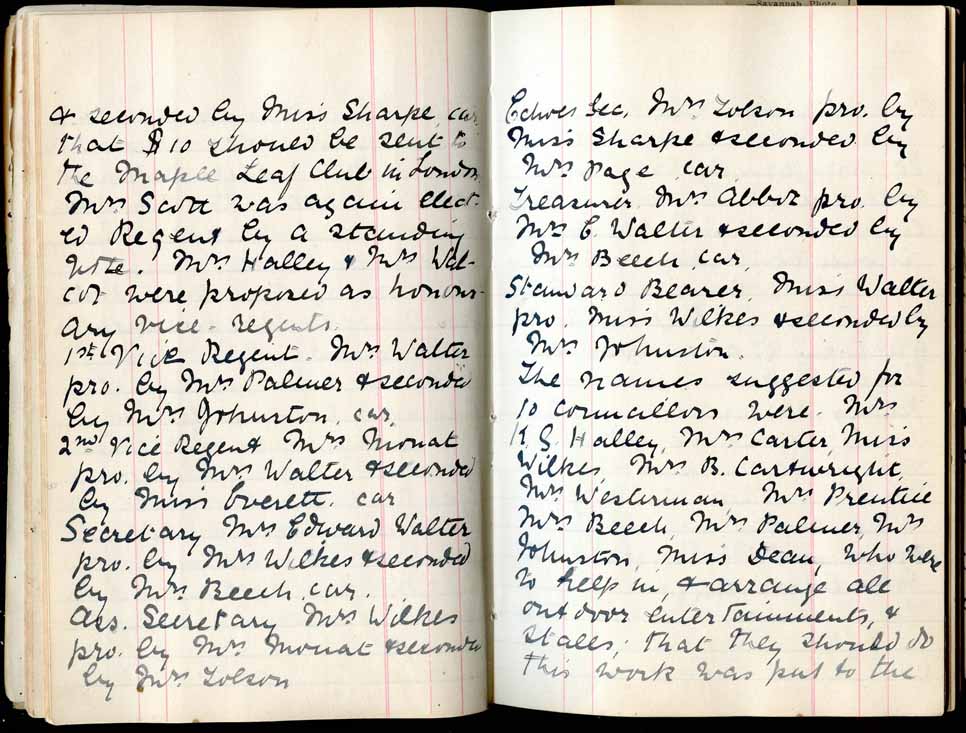 & seconded by Miss Sharpe, car.
that $10 should be sent to
the Maple Leaf Club in London.
Mrs Scott was again elect-
ed Regent by a standing
vote. Mrs Halley & Mrs Wal-
cot were proposed as honour-
ary vice-regents.
1st Vice Regent. Mrs Walter
pro. by Mrs Palmer & seconded
by Mrs Johnston, car.
2nd Vice Regent Mrs Monat
pro. by Mrs Walter & seconded
by Miss Everett. car
Secretary Mrs Edward Walter
pro. by Mrs Wilkes & seconded
by Mrs Beech, car.
Ass. Secretary Mrs Wilkes
pro. by Mrs Monat & seconded
by Mrs Tolson
—Savannah Photo
Echoes Sec. Mrs Tolson pro. by
Miss Sharpe & seconded by
Mrs Page car.
Treasurer. Mrs Abbot pro. by
Mrs E. Walter & seconded by
Mrs Beech, car,
Standard Bearer, Miss Walter
pro. Miss Wilkes & seconded by
Mrs Johnston.
The names suggested for
10 councillors were. Mrs
K. G. Halley, Mrs Carter, Miss
Wilkes, Mrs B. Cartwright,
Mrs Westerman, Mrs Prentice
Mrs Beech, Mrs Palmer, Mrs
Johnston, Miss Dean, who were
to help in, & arrange all
outdoor entertainments, &
stalls; that they should do
this work was put to the